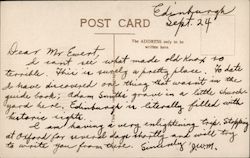 Edinburgh
Sept. 24
POST CARD
The ADDRESS only to be
written here.
Dear Mr Ewert,
I can't see what made old Knox so
terrible. This is surely a pretty place. To date
I have discovered one thing that wasn't in the
guide book: Adam Smith's grave in a little church
yard here. Edinburgh is literally filled with
historic sights.
I am having a very enlightening trip. Stopping
at Oxford for several days shortly and will try
to write you from there. Sincerely